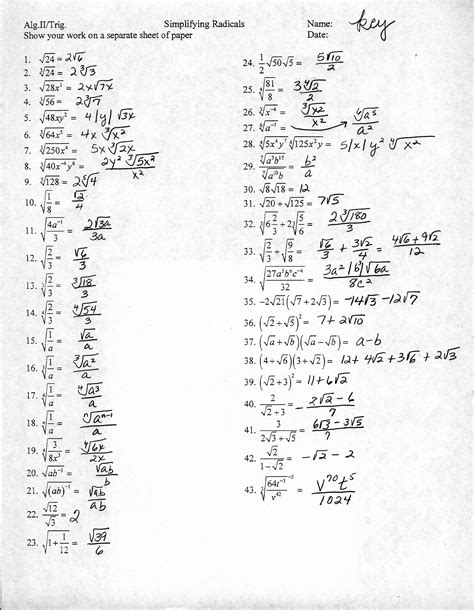 Alg.II/Trig. Simplifying Radicals Name: key
Show your work on a separate sheet of paper Date:
1. √24 = 2√6
2. ∛24 = 2∛3
3. √28x³ = 2x√7x
4. ∛56 = 2∛7
5. √48xy² = 4|y|√3x
6. ∛64x⁵ = 4x∛x²
7. ∛250x⁴ = 5x∛2x
8. ∛40x⁻⁴y⁶ = 2y²∛5x² / x²
9. = 2 4
10. √(1/8) = √2/4
11. √(4a⁻¹/3) = 2√3a / 3a
12. √(2/3) = √6/3
13. ∛(2/3) = ∛18/3
14. ∜(2/3) = ∜54/3
15. √(1/a) = √a/a
16. ∛(1/a) = ∛a²/a
17. ∜(1/a) = ∜a³/a
18. ⁿ√(1/a) = ⁿ√aⁿ⁻¹/a
19. ∜(3/8x³) = ∜6x/2x
20. √ab⁻¹ = √ab/b
21. √(ab)⁻¹ = √ab/ab
22. √12/√3 = 2
23. √(1+1/12) = √39/6
24. (1/2)√50√5 = 5√10/2
25. ∜(81/8) = 3∜2/2
26. ∛x⁻⁴ = ∛x²/x²
27. a⁻⁷ = a⁵/a²
28. ∜5x⁴y⁷ ∜125x²y = 5|x|y²∜x²
29. ∛a³b¹⁵ / a¹⁰b = b²/a
30. √8√18 = 12
31. √20 + √125 = 7√5
32. ∛6 2/3 + 2∛5/6 = 2∛180/3
33. √(2/3) + √(9/8) = √6/3 + 3√2/4 = 4√6 + 9√2 / 12
34. √(27a⁵b³c⁻⁴/32) = 3a²|b|√6a / 8c²
35. -2√21(√7 + 2√3) = -14√3 - 12√7
36. (√2 + √5)² = 7 + 2√10
37. (√a + √b)(√a - √b) = a - b
38. (4 + √6)(3 + √2) = 12 + 4√2 + 3√6 + 2√3
39. (√2 + 3)² = 11 + 6√2
40. 2/(√2 + 3) = - 2√2 - 6 / 7
41. 3/(2√3 + √5) = 6√3 - 3√5 / 7
42. √2/(1 - √2) = -√2 - 2
43. 64t / v⁴² = v⁷⁰t⁵/1024